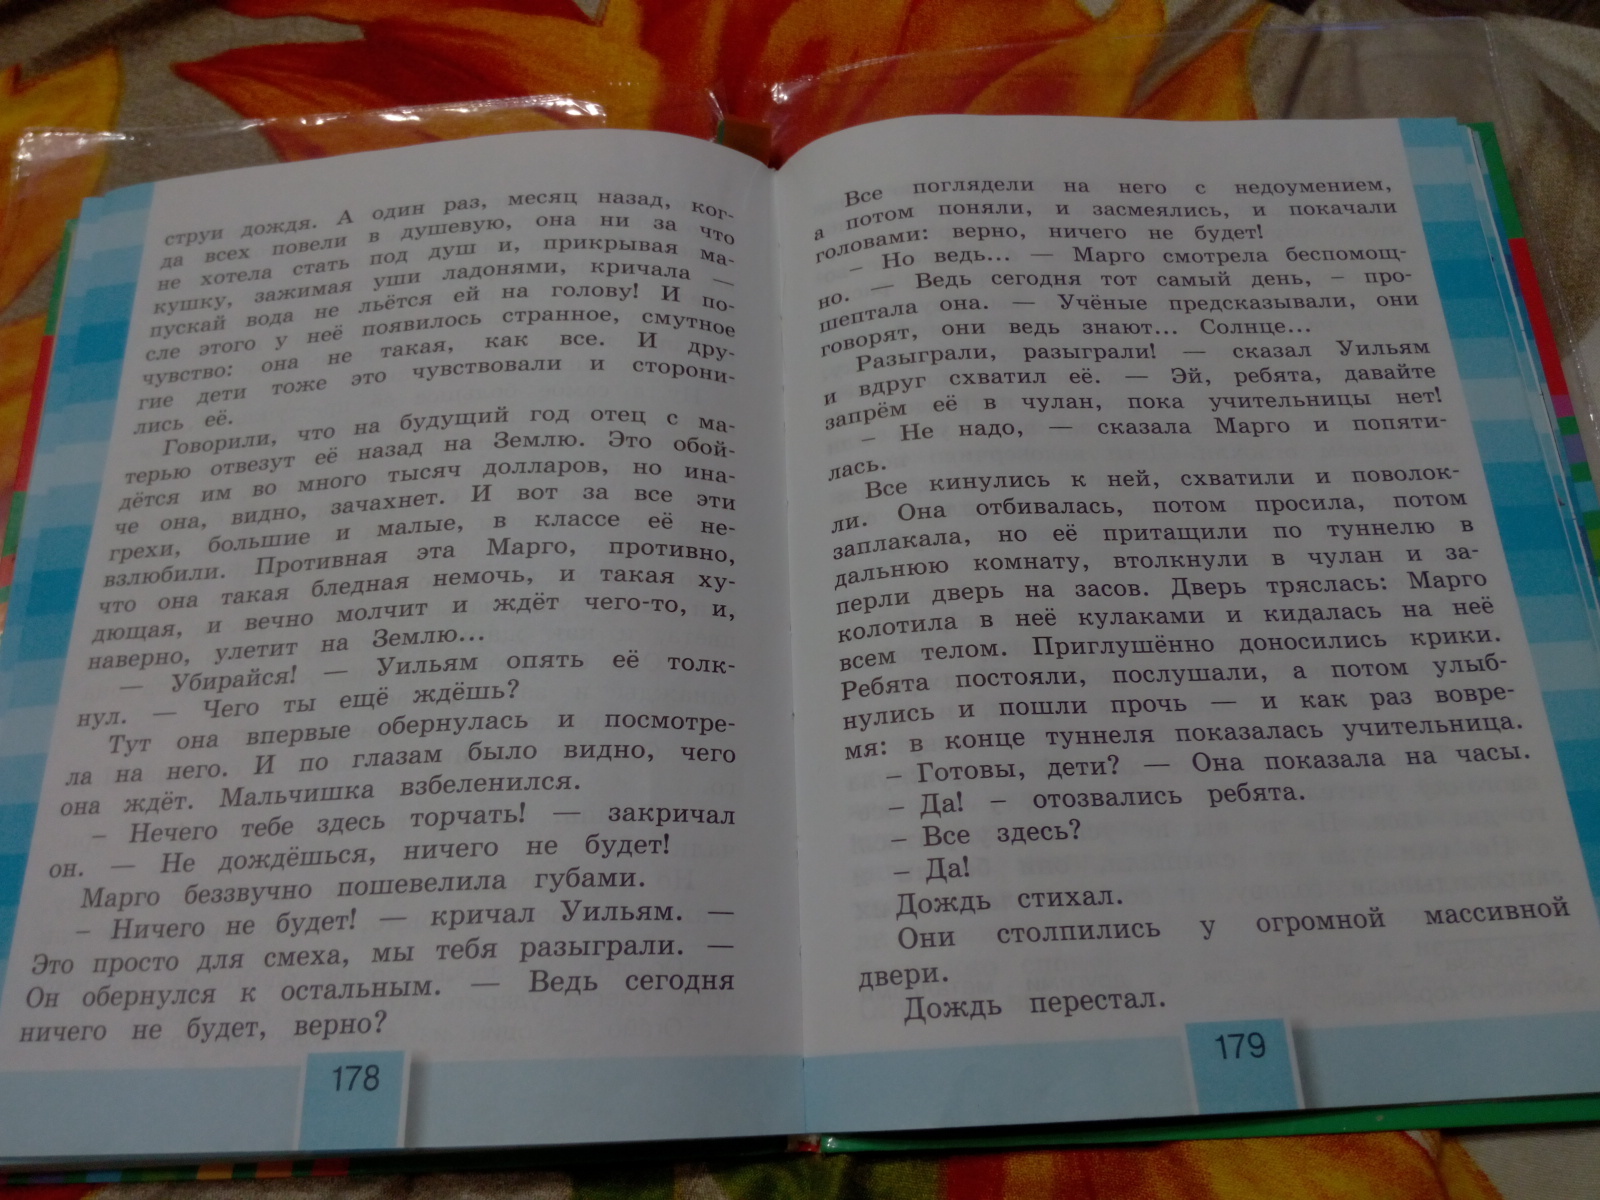 струи дождя. А один раз, месяц назад, ког-
да всех повели в душевую, она ни за что
не хотела стать под душ и, прикрывая ма-
кушку, зажимая уши ладонями, кричала —
пускай вода не льётся ей на голову! И по-
сле этого у неё появилось странное, смутное
чувство: она не такая, как все. И дру-
гие дети тоже это чувствовали и сторони-
лись её.
Говорили, что на будущий год отец с ма-
терью отвезут её назад на Землю. Это обой-
дётся им во много тысяч долларов, но ина-
че она, видно, зачахнет. И вот за все эти
грехи, большие и малые, в классе её не-
взлюбили. Противная эта Марго, противно,
что она такая бледная немочь, и такая ху-
дющая, и вечно молчит и ждёт чего-то, и,
наверно, улетит на Землю...
— Убирайся! — Уильям опять её толк-
нул. — Чего ты ещё ждёшь?
Тут она впервые обернулась и посмотре-
ла на него. И по глазам было видно, чего
она ждёт. Мальчишка взбеленился.
– Нечего тебе здесь торчать! — закричал
он. — Не дождёшься, ничего не будет!
Марго беззвучно пошевелила губами.
– Ничего не будет! — кричал Уильям. —
Это просто для смеха, мы тебя разыграли. —
Он обернулся к остальным. — Ведь сегодня
ничего не будет, верно?
178
Все поглядели на него с недоумением,
а потом поняли, и засмеялись, и покачали
головами: верно, ничего не будет!
– Но ведь... — Марго смотрела беспомощ-
но. — Ведь сегодня тот самый день, – про-
шептала она. — Учёные предсказывали, они
говорят, они ведь знают... Солнце...
Разыграли, разыграли! — сказал Уильям
и вдруг схватил её. — Эй, ребята, давайте
запрём её в чулан, пока учительницы нет!
– Не надо, — сказала Марго и попяти-
лась.
Все кинулись к ней, схватили и поволок-
ли. Она отбивалась, потом просила, потом
заплакала, но её притащили по туннелю в
дальнюю комнату, втолкнули в чулан и за-
перли дверь на засов. Дверь тряслась: Марго
колотила в неё кулаками и кидалась на неё
всем телом. Приглушённо доносились крики.
Ребята постояли, послушали, а потом улыб-
нулись и пошли прочь — и как раз вовре-
мя: в конце туннеля показалась учительница.
– Готовы, дети? — Она показала на часы.
– Да! – отозвались ребята.
– Все здесь?
– Да!
Дождь стихал.
Они столпились у огромной массивной
двери.
Дождь перестал.
179